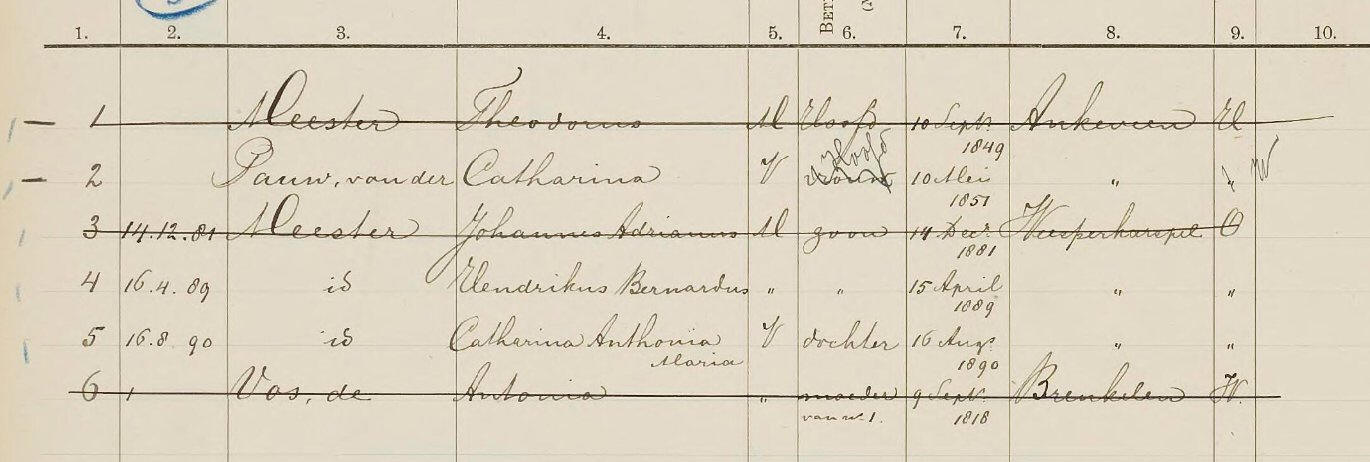 1. 2. 3. 4. 5. 6. 7. 8. 9. 10.
1 Meester Theodorus M Hoofd 10 Sept. Ankeveen H
1849
Hoofd
2 Pauw, van der Catharina V vrouw 10 Mei " " W
1851
3 14.12.81 Meester Johannes Adrianus M zoon 14 Decr. Weesperkarspel O
1881
4 16.4.89 id Hendrikus Bernardus " " 15 April " "
1889
5 16.8 90 id Catharina Anthonia V dochter 16 Augs. " "
Maria 1890
6 Vos, de Antonia " moeder 9 Sept. Breukelen W.
van no. 1. 1818